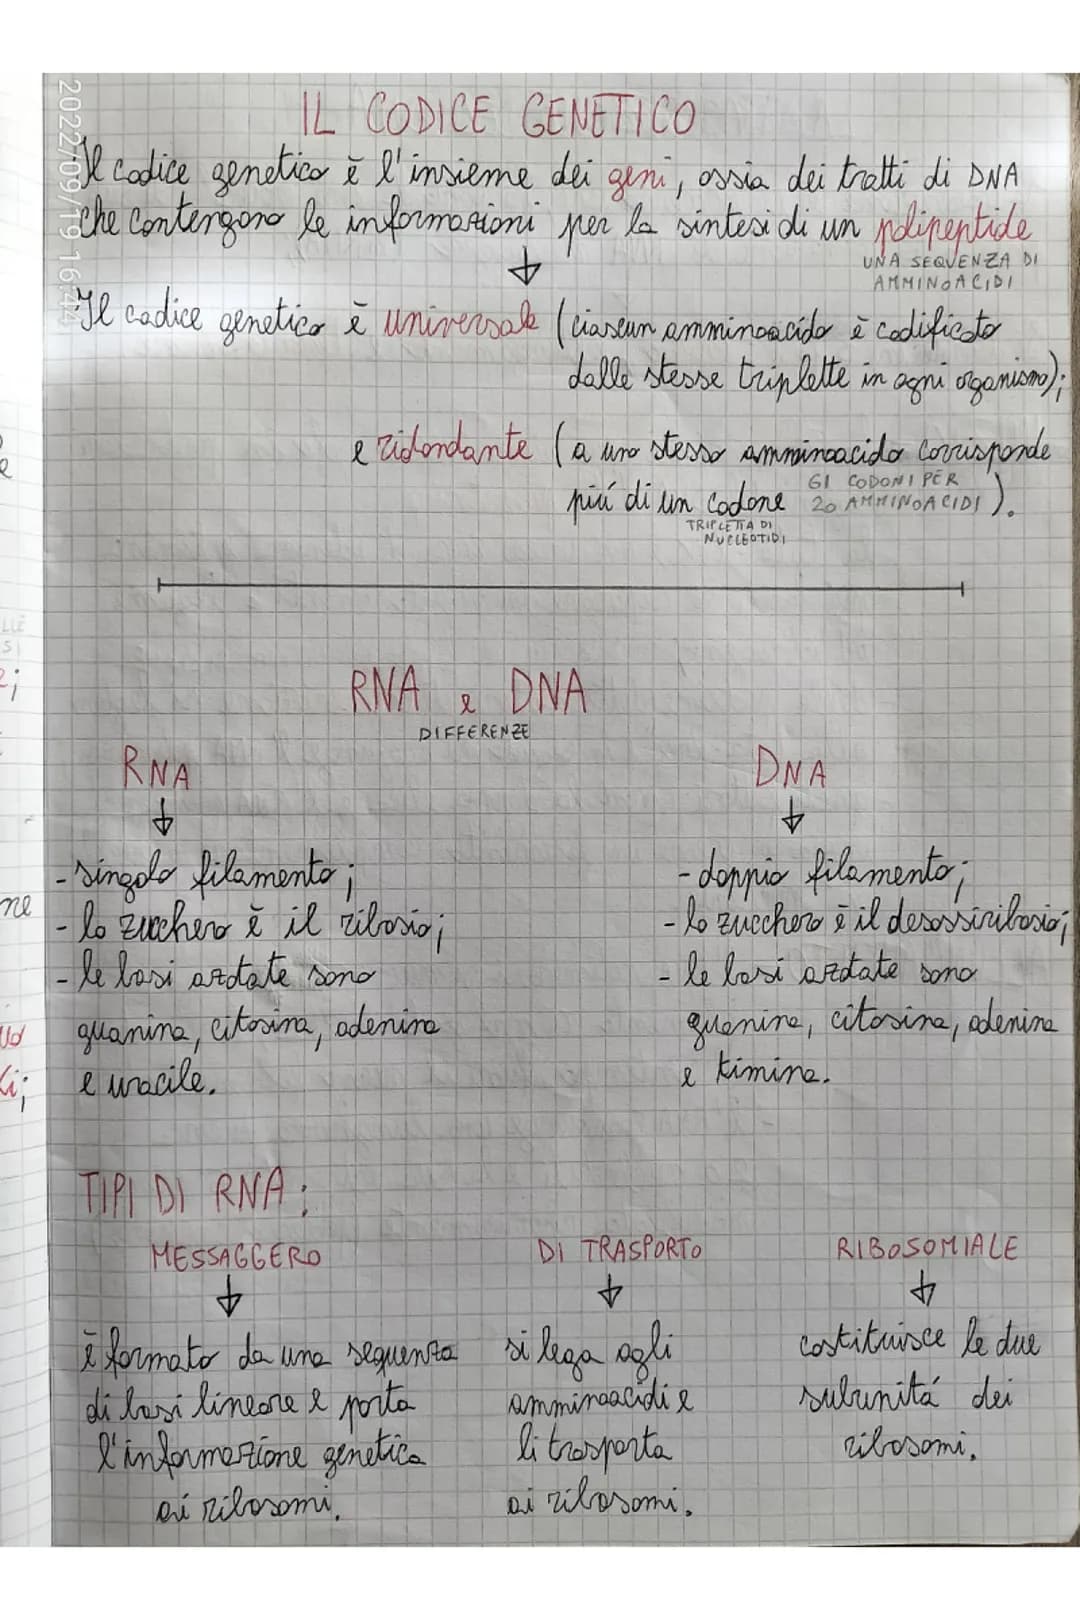 IL CODICE GENETICO
Il codice genetico è l'insieme dei geni, ossia dei tratti di DNA
che contengono le informazioni per la sintesi di un polipeptide
UNA SEQUENZA DI
AMMINOACIDI
Il codice genetico è universale (ciascun amminoacido è codificato
dalle stesse triplette in ogni organismo);
e ridondante (a uno stesso amminoacido corrisponde
più di un codone 61 CODONI PER
20 AMMINOACIDI).
TRIPLETTA DI
NUCLEOTIDI
RNA e DNA
DIFFERENZE
RNA
- singolo filamento;
- lo zucchero è il ribosio;
- le basi azotate sono
guanina, citosina, adenina
e uracile.
DNA
- doppio filamento;
- lo zucchero è il desossiribosio;
- le basi azotate sono
guanina, citosina, adenina
e timina.
TIPI DI RNA:
MESSAGGERO
è formato da una sequenza
di basi lineare e porta
l'informazione genetica
ai ribosomi.
DI TRASPORTO
si lega agli
amminoacidi e
li trasporta
ai ribosomi.
RIBOSOMIALE
costituisce le due
subunitá dei
ribosomi.
2022/09/19 16:44